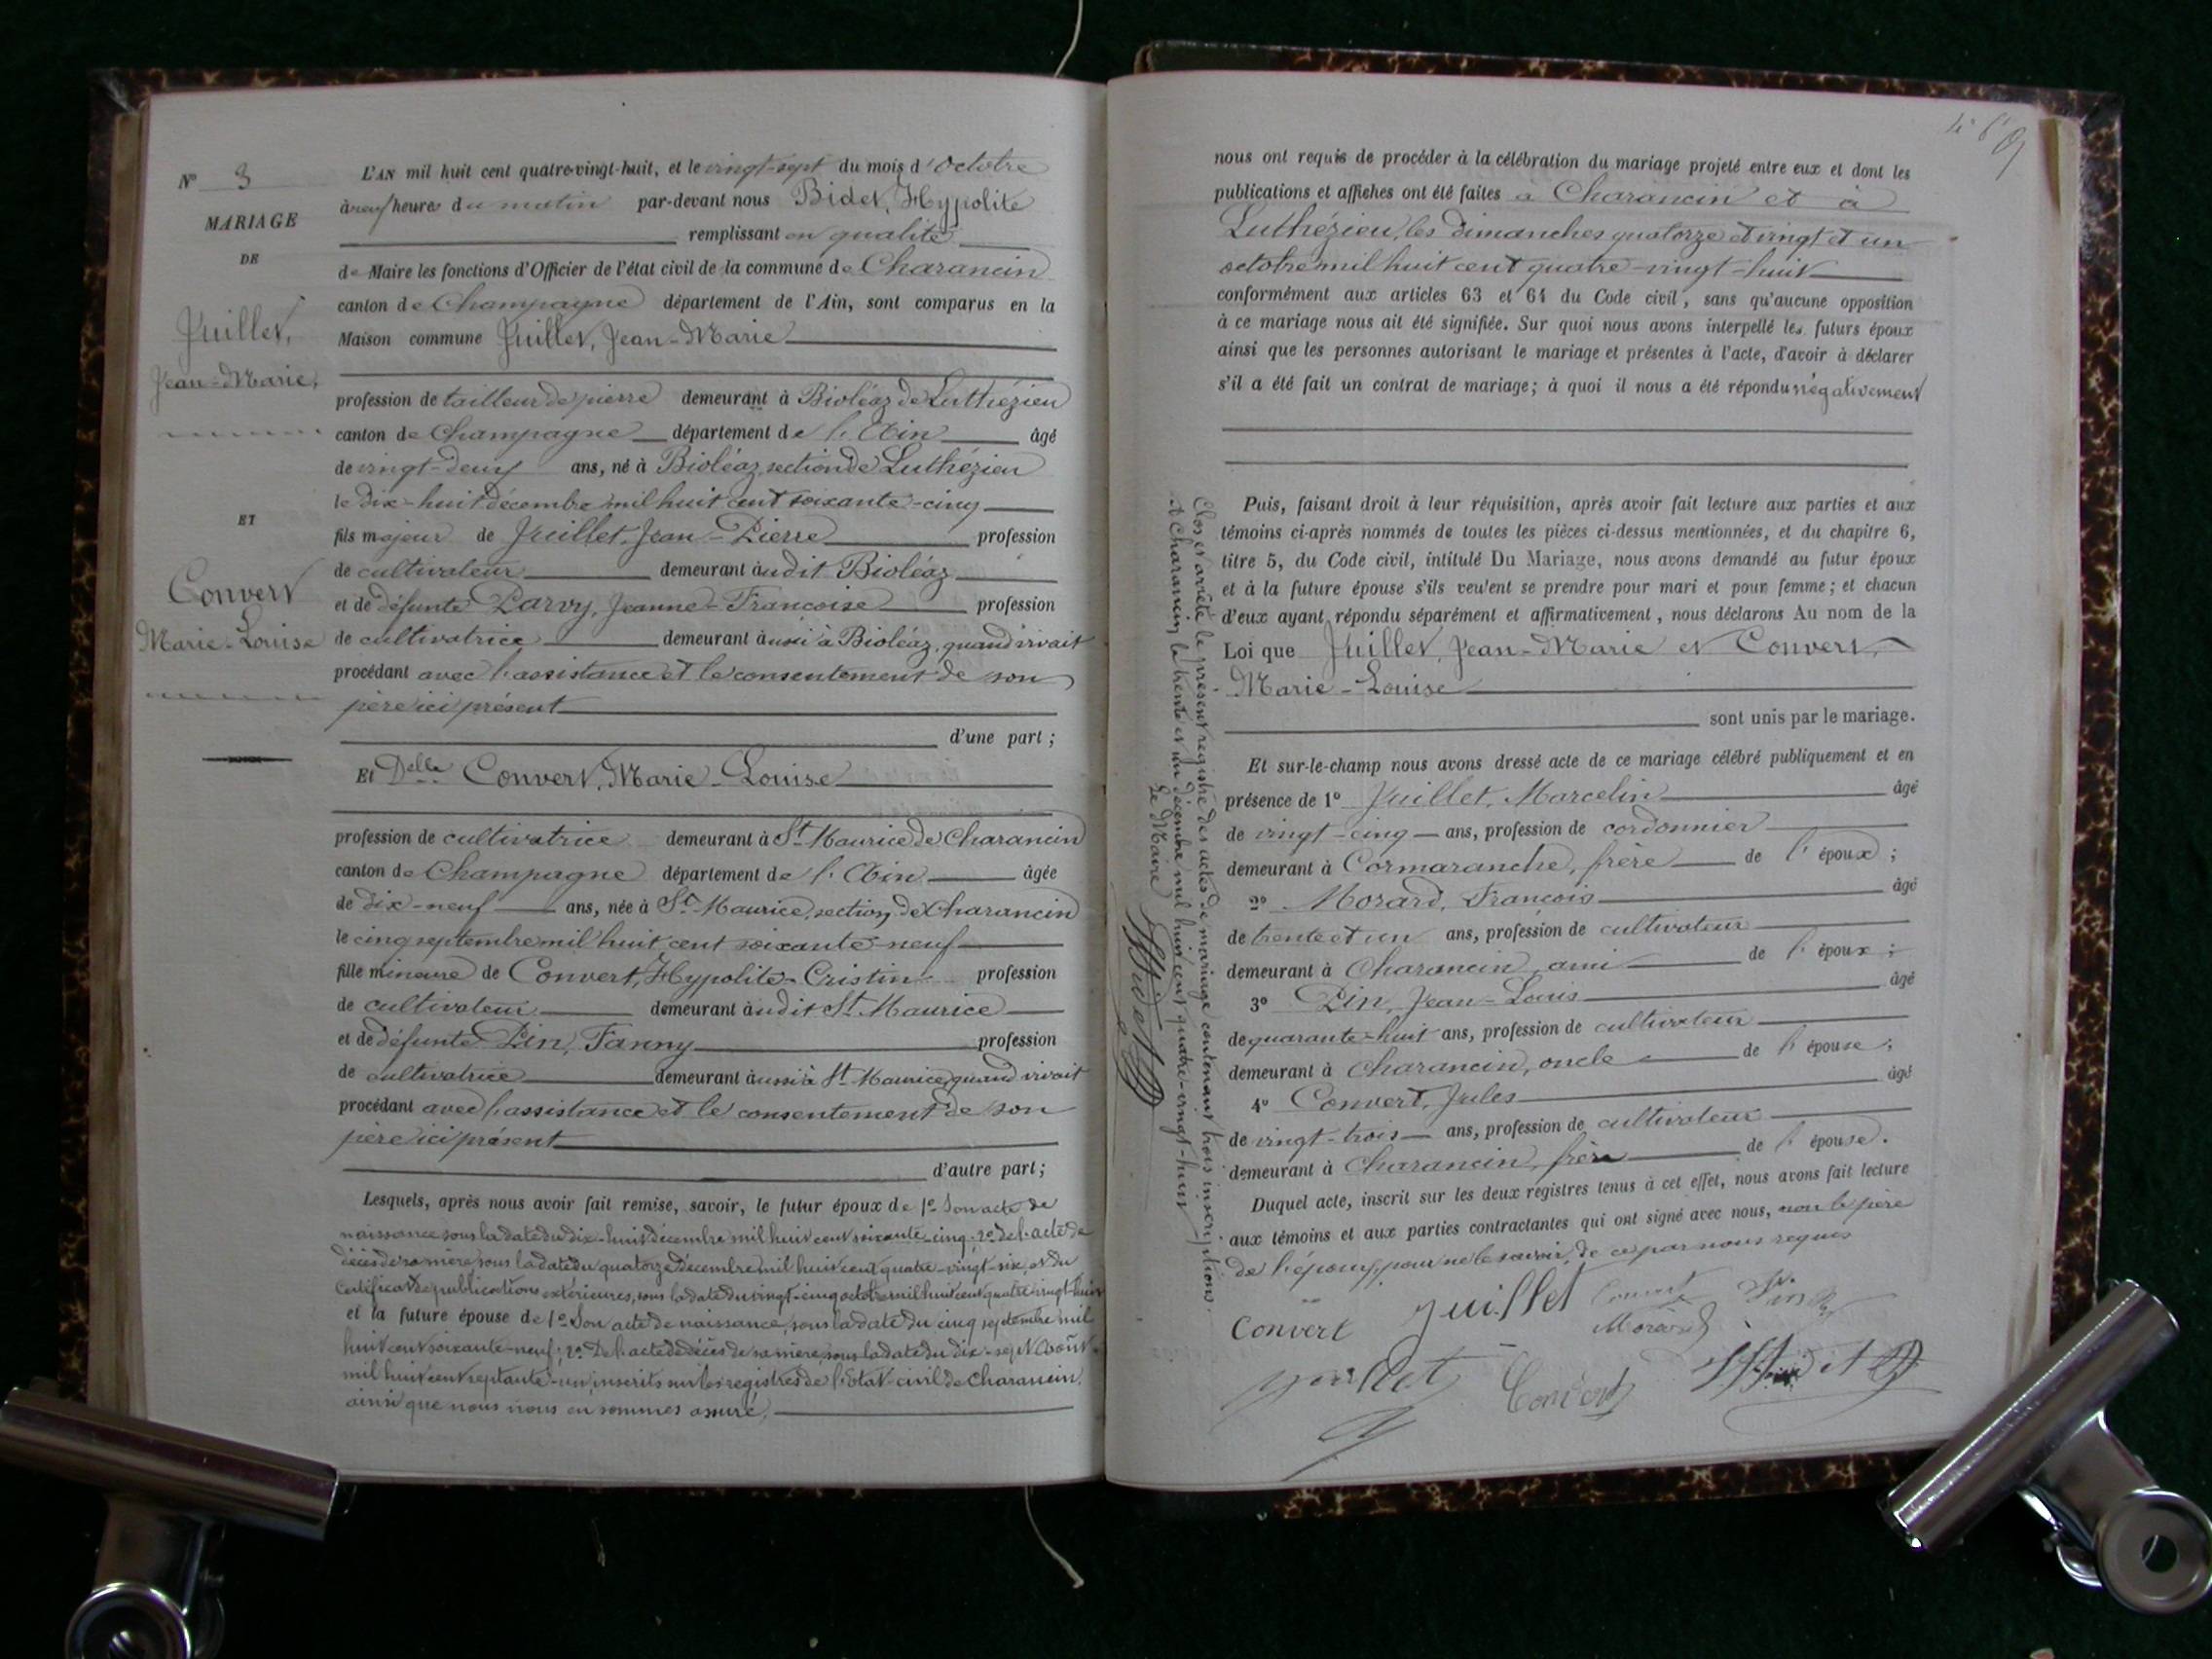 N° 3
MARIAGE
DE
Juillet,
Jean-Marie,
ET
Convert
Marie-Louise
L'AN mil huit cent quatre-vingt-huit, et le vingt-sept du mois d'octobre
à neuf heures du matin par-devant nous Bidet, Hypolite
remplissant en qualité
de Maire les fonctions d'Officier de l'état civil de la commune de Charancin
canton de Champagne département de l'Ain, sont comparus en la
Maison commune Juillet, Jean-Marie
profession de tailleur de pierre demeurant à Bioléaz de Luthézieu
canton de Champagne département de l'Ain âgé
de vingt-deux ans, né à Bioléaz, section de Luthézieu
le dix-huit décembre mil huit cent soixante-cinq
fils majeur de Juillet, Jean-Pierre profession
de cultivateur demeurant audit Bioléaz
et de défunte Parvy, Jeanne-Francoise profession
de cultivatrice demeurant aussi à Bioléaz, quand vivait
procédant avec l'assistance et le consentement de son
père ici présent
d'une part ;
Et Delle Convert, Marie-Louise
profession de cultivatrice demeurant à St Maurice de Charancin
canton de Champagne département de l'Ain âgée
de dix-neuf ans, née à St Maurice, section de Charancin
le cinq septembre mil huit cent soixante-neuf
fille mineure de Convert, Hypolite-Cristin profession
de cultivateur demeurant audit St Maurice
et de défunte Pin, Fanny profession
de cultivatrice demeurant aussi à St Maurice, quand vivait
procédant avec l'assistance et le consentement de son
père ici présent
d'autre part ;
Lesquels, après nous avoir fait remise, savoir, le futur époux de 1° Son acte de
naissance sous la date du dix-huit décembre mil huit cent soixante-cinq, 2° de l'acte de
décès de sa mère, sous la date du quatorze décembre mil huit cent quatre-vingt-six, et du
certificat de publications extérieures, sous la date du vingt-cinq octobre mil huit cent quatre-vingt-huit
et la future épouse de 1° Son acte de naissance, sous la date du cinq septembre mil
huit cent soixante-neuf; 2° De l'acte de décès de sa mère, sous la date du dix-sept Août
mil huit cent septante-un, inscrits sur les registres de l'Etat-civil de Charancin,
ainsi que nous nous en sommes assuré,
nous ont requis de procéder à la célébration du mariage projeté entre eux et dont les
publications et affiches ont été faites à Charancin et à
Luthézieu, les dimanches quatorze et vingt et un
octobre mil huit cent quatre-vingt-huit
conformément aux articles 63 et 64 du Code civil, sans qu'aucune opposition
à ce mariage nous ait été signifiée. Sur quoi nous avons interpellé les futurs époux
ainsi que les personnes autorisant le mariage et présentes à l'acte, d'avoir à déclarer
s'il a été fait un contrat de mariage; à quoi il nous a été répondu négativement
Puis, faisant droit à leur réquisition, après avoir fait lecture aux parties et aux
témoins ci-après nommés de toutes les pièces ci-dessus mentionnées, et du chapitre 6,
titre 5, du Code civil, intitulé Du Mariage, nous avons demandé au futur époux
et à la future épouse s'ils veulent se prendre pour mari et pour femme; et chacun
d'eux ayant répondu séparément et affirmativement, nous déclarons Au nom de la
Loi que Juillet, Jean-Marie et Convert,
Marie-Louise
sont unis par le mariage.
Et sur-le-champ nous avons dressé acte de ce mariage célébré publiquement et en
présence de 1° Juillet, Marcelin âgé
de vingt-cinq ans, profession de cordonnier
demeurant à Cormaranche, frère de l'époux ;
2° Morard, Francois âgé
de trente et un ans, profession de cultivateur
demeurant à Charancin, ami de l'époux ;
3° Pin, Jean-Louis âgé
de quarante-huit ans, profession de cultivateur
demeurant à Charancin, oncle de l'épouse ;
4° Convert, Jules âgé
de vingt-trois ans, profession de cultivateur
demeurant à Charancin, frère de l'épouse.
Duquel acte, inscrit sur les deux registres tenus à cet effet, nous avons fait lecture
aux témoins et aux parties contractantes qui ont signé avec nous, non le père
de l'époux, pour ne le savoir, de ce par nous requis
Convert Juillet Convert Pin
Morard
Juillet Convert HBidet
Clos et arrêté le présent registre des actes de mariage contenant trois inscriptions.
A Charancin le trente et un décembre mil huit cent quatre-vingt-huit
Le Maire
HBidet